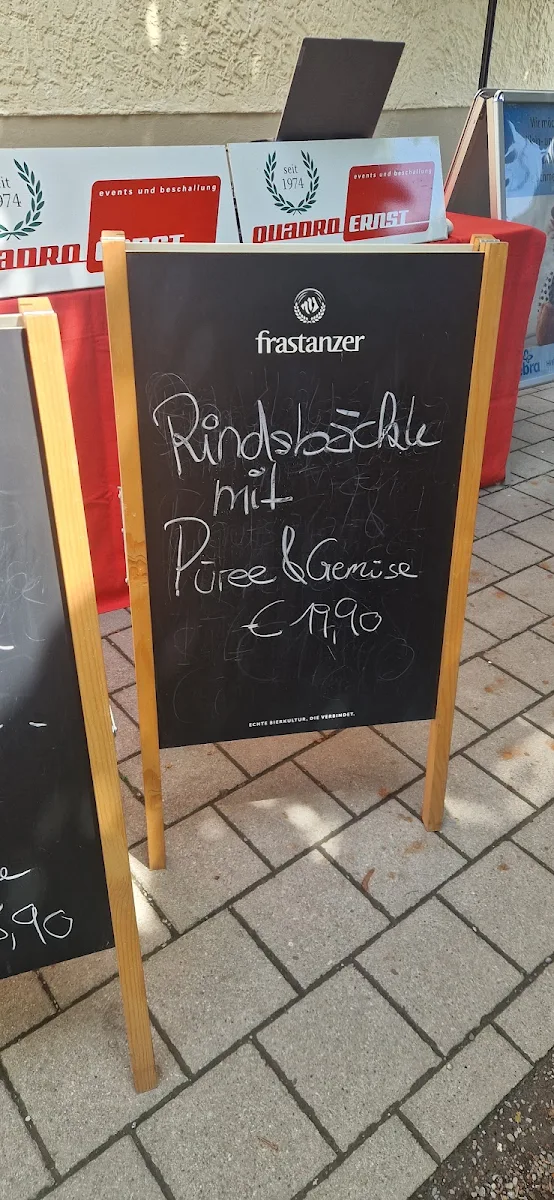 seit
1974
events und beschallung
QUADRO ERNST
seit
1974
events und beschallung
QUADRO ERNST
frastanzer
Rindsbäckle
mit
Püree & Gemüse
€ 19,90
ECHTE BIERKULTUR, DIE VERBINDET.
,90